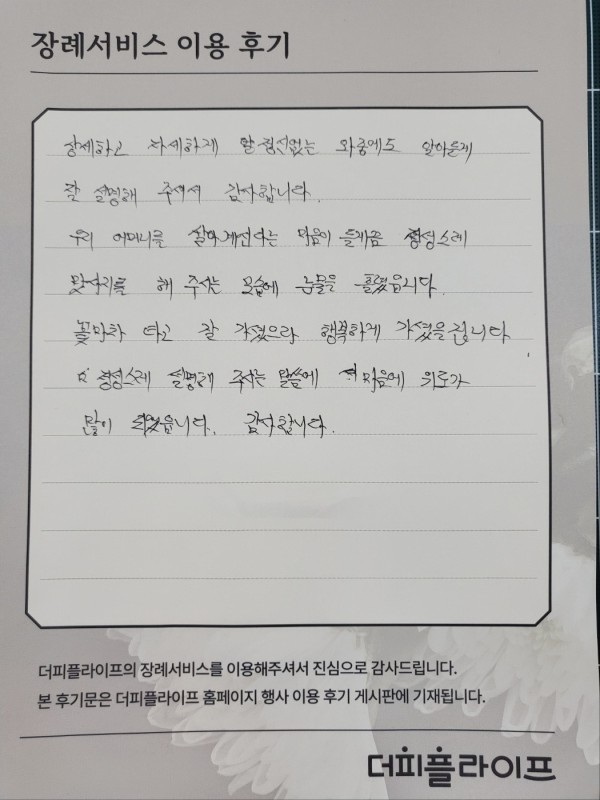 장례서비스 이용 후기
상세하고 자세하게 알 정신없는 와중에도 알아듣게
잘 설명해 주셔서 감사합니다.
우리 어머니를 살아계신다는 마음이 들게끔 정성스레
맞사지를 해 주시는 모습에 눈물을 흘렸읍니다.
꽃마차 타고 잘 가셨으라 행복하게 가셨을겁니다
정성스레 설명해 주시는 말씀에 마음에 위로가
많이 되었읍니다. 감사합니다.
더피플라이프의 장례서비스를 이용해주셔서 진심으로 감사드립니다.
본 후기문은 더피플라이프 홈페이지 행사 이용 후기 게시판에 기재됩니다.
더피플라이프